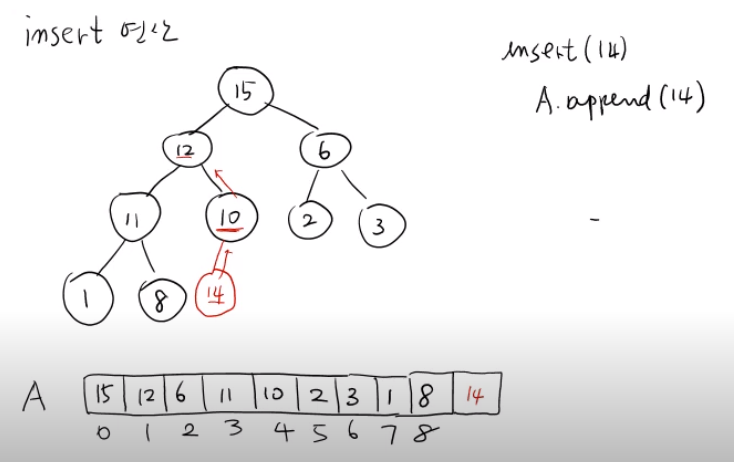 insert 연산
insert(14)
A.append(14)
15
12
6
11
10
2
3
1
8
14
A
15 12 6 11 10 2 3 1 8 14
0 1 2 3 4 5 6 7 8